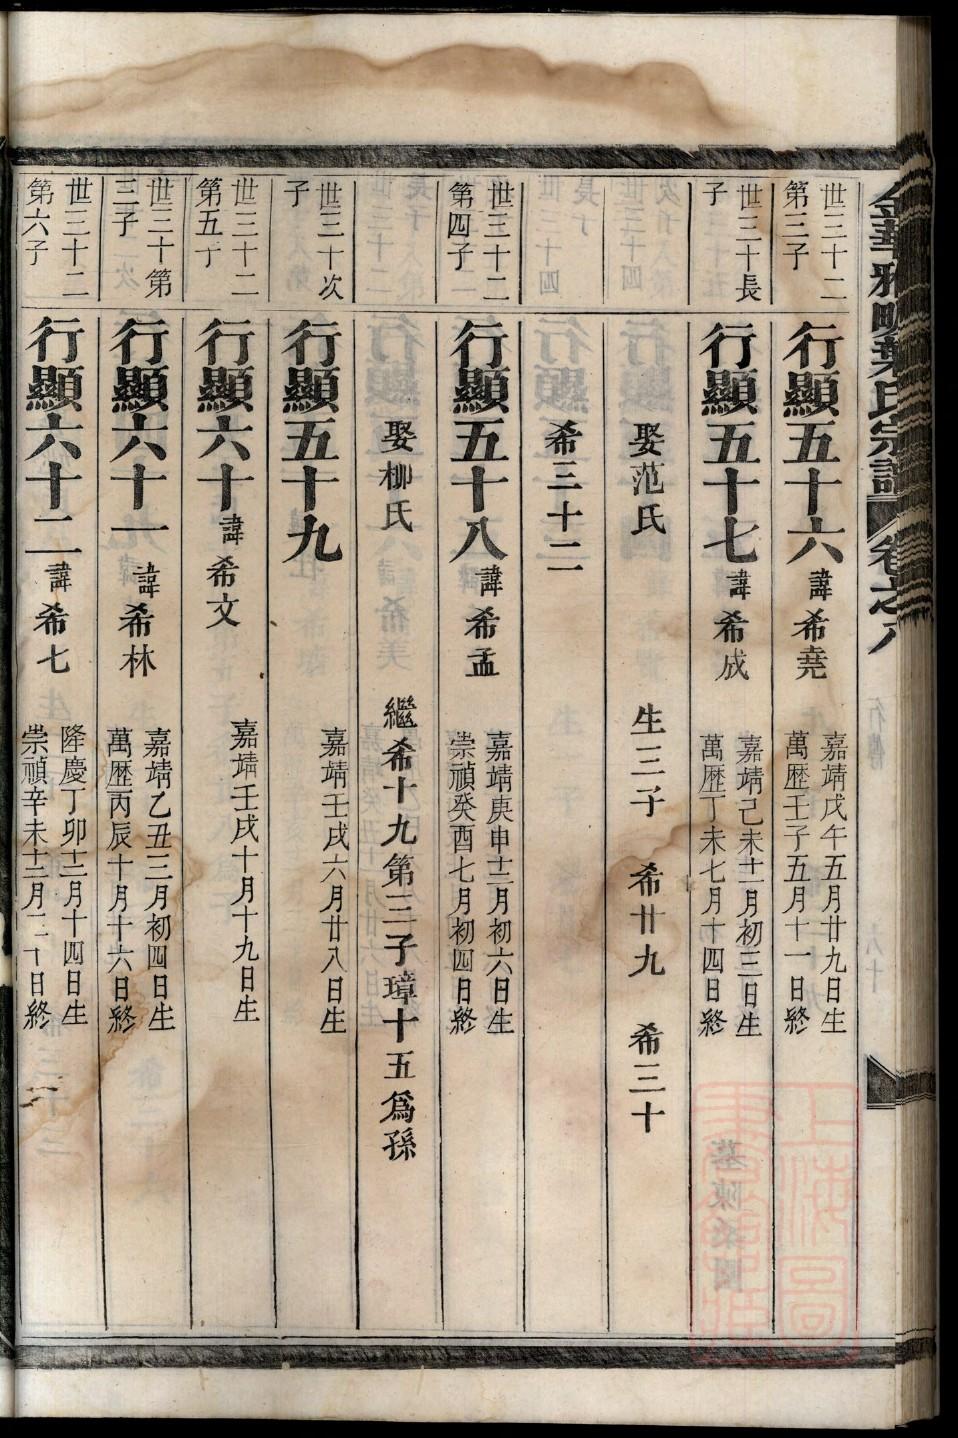 金華雅畈葉氏宗譜 卷之八
世三十二
第三子
行顯五十六 諱希堯
嘉靖戊午五月廿九日生
萬歷壬子五月十一日終
世三十長
子
行顯五十七 諱希成
嘉靖己未十一月初三日生
萬歷丁未七月十四日終
娶范氏 生三子 希廿九 希三十
希三十二
世三十二
第四子
行顯五十八 諱希孟
嘉靖庚申十二月初六日生
崇禎癸酉七月初四日終
娶柳氏 繼希十九第三子璋十五爲孫
世三十次
子
行顯五十九
嘉靖壬戌六月廿八日生
世三十二
第五子
行顯六十 諱希文
嘉靖壬戌十月十九日生
世三十第
三子
行顯六十一 諱希林
嘉靖乙丑三月初四日生
萬歷丙辰十月十六日終
世三十二
第六子
行顯六十二 諱希七
隆慶丁卯十二月十四日生
崇禎辛未十二月二十日終
上海圖
書館藏